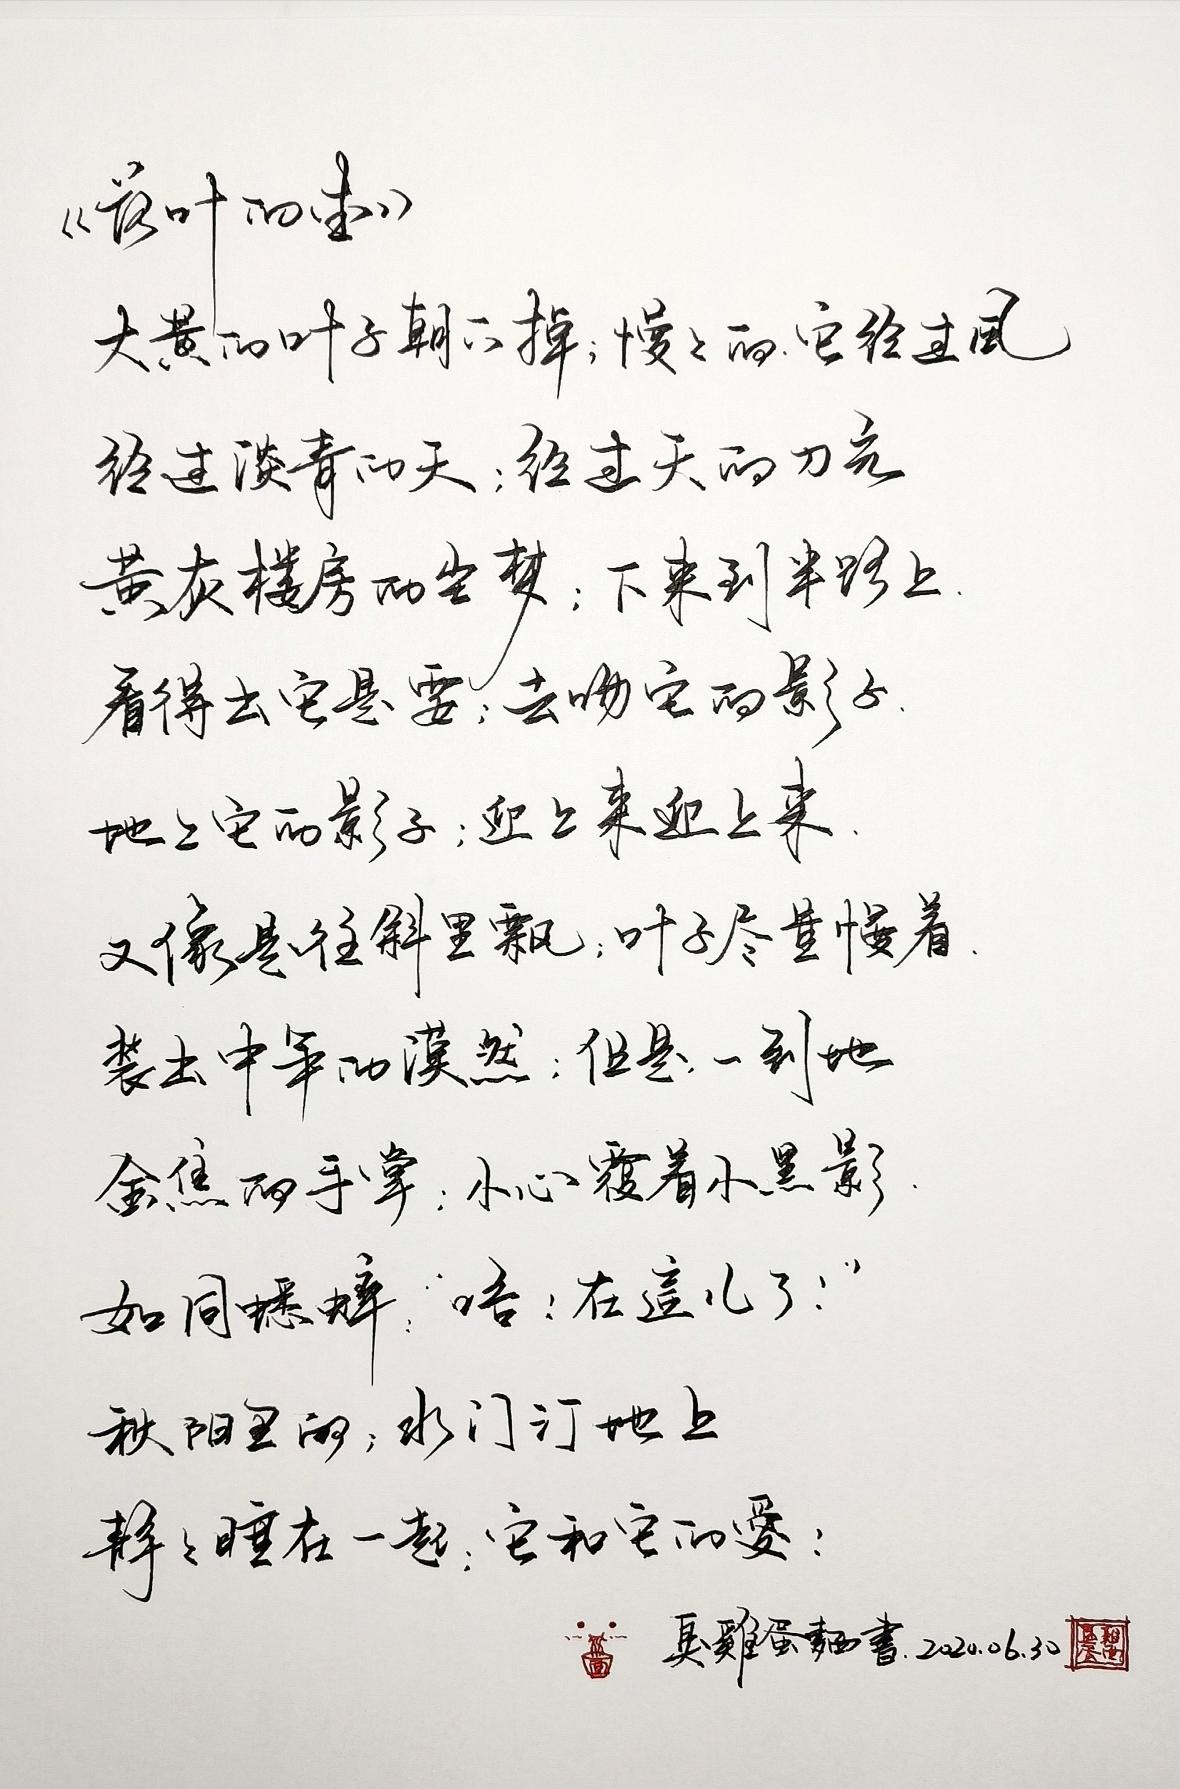 《落叶的爱》
大黄的叶子朝下掉；慢々的，它经过风
经过淡青的天；经过天的刀光
黄灰楼房的尘梦；下来到半路上．
看得出它是要；去吻它的影子．
地上它的影子；迎上来迎上来．
又像是往斜里飘；叶子尽量慢着．
装出中年的漠然；但是，一到地
金焦的手掌；小心覆着小黑影．
如同蟋蟀："唔！在這儿了！"
秋阳里的；水门汀地上
静々睡在一起；它和它的愛！
雞蛋麵書．2020.06.30